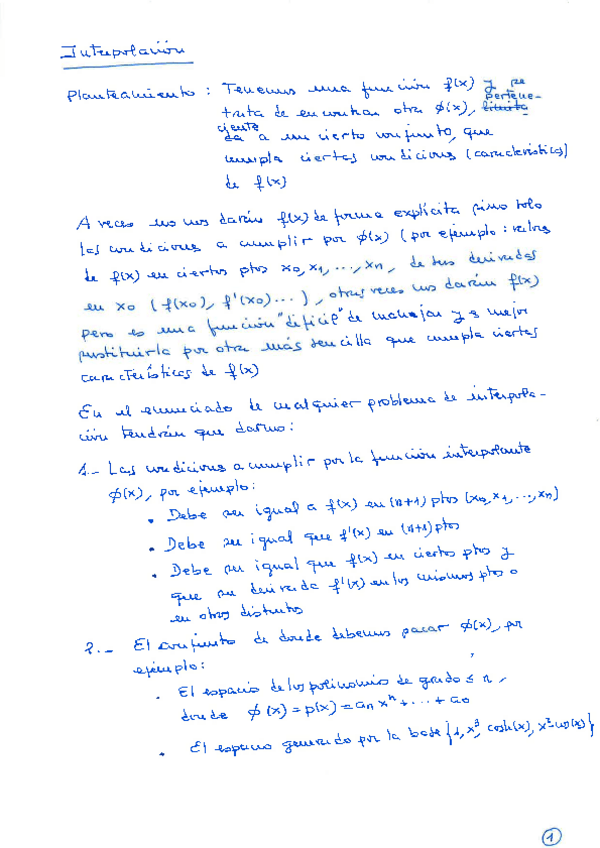 Interpolación
Planteamiento : Tenemos una función f(x) y se
trata de encontrar otra ϕ(x), pertene-
ciente a un cierto conjunto, que
cumpla ciertas condiciones (características)
de f(x)
A veces no nos darán f(x) de forma explícita sino solo
las condiciones a cumplir por ϕ(x) (por ejemplo: valores
de f(x) en ciertos ptos x0, x1, ..., xn, de sus derivadas
en x0 (f(x0), f'(x0)...), otras veces nos darán f(x)
pero es una función "difícil" de manejar y es mejor
sustituirla por otra más sencilla que cumpla ciertas
características de f(x)
En el enunciado de cualquier problema de interpola-
ción tendrán que darnos:
1.- Las condiciones a cumplir por la función interpolante
ϕ(x), por ejemplo:
• Debe ser igual a f(x) en (n+1) ptos (x0, x1, ..., xn)
• Debe ser igual que f'(x) en (n+1) ptos
• Debe ser igual que f(x) en ciertos ptos y
que su derivada f'(x) en los mismos ptos o
en otros distintos
2.- El conjunto de donde debemos sacar ϕ(x), por
ejemplo:
• El espacio de los polinomios de grado ≤ n,
donde ϕ(x) = p(x) = an x^n + ... + a0
• El espacio generado por la base {1, x^3, cosh(x), x^2-cos(x)}
1